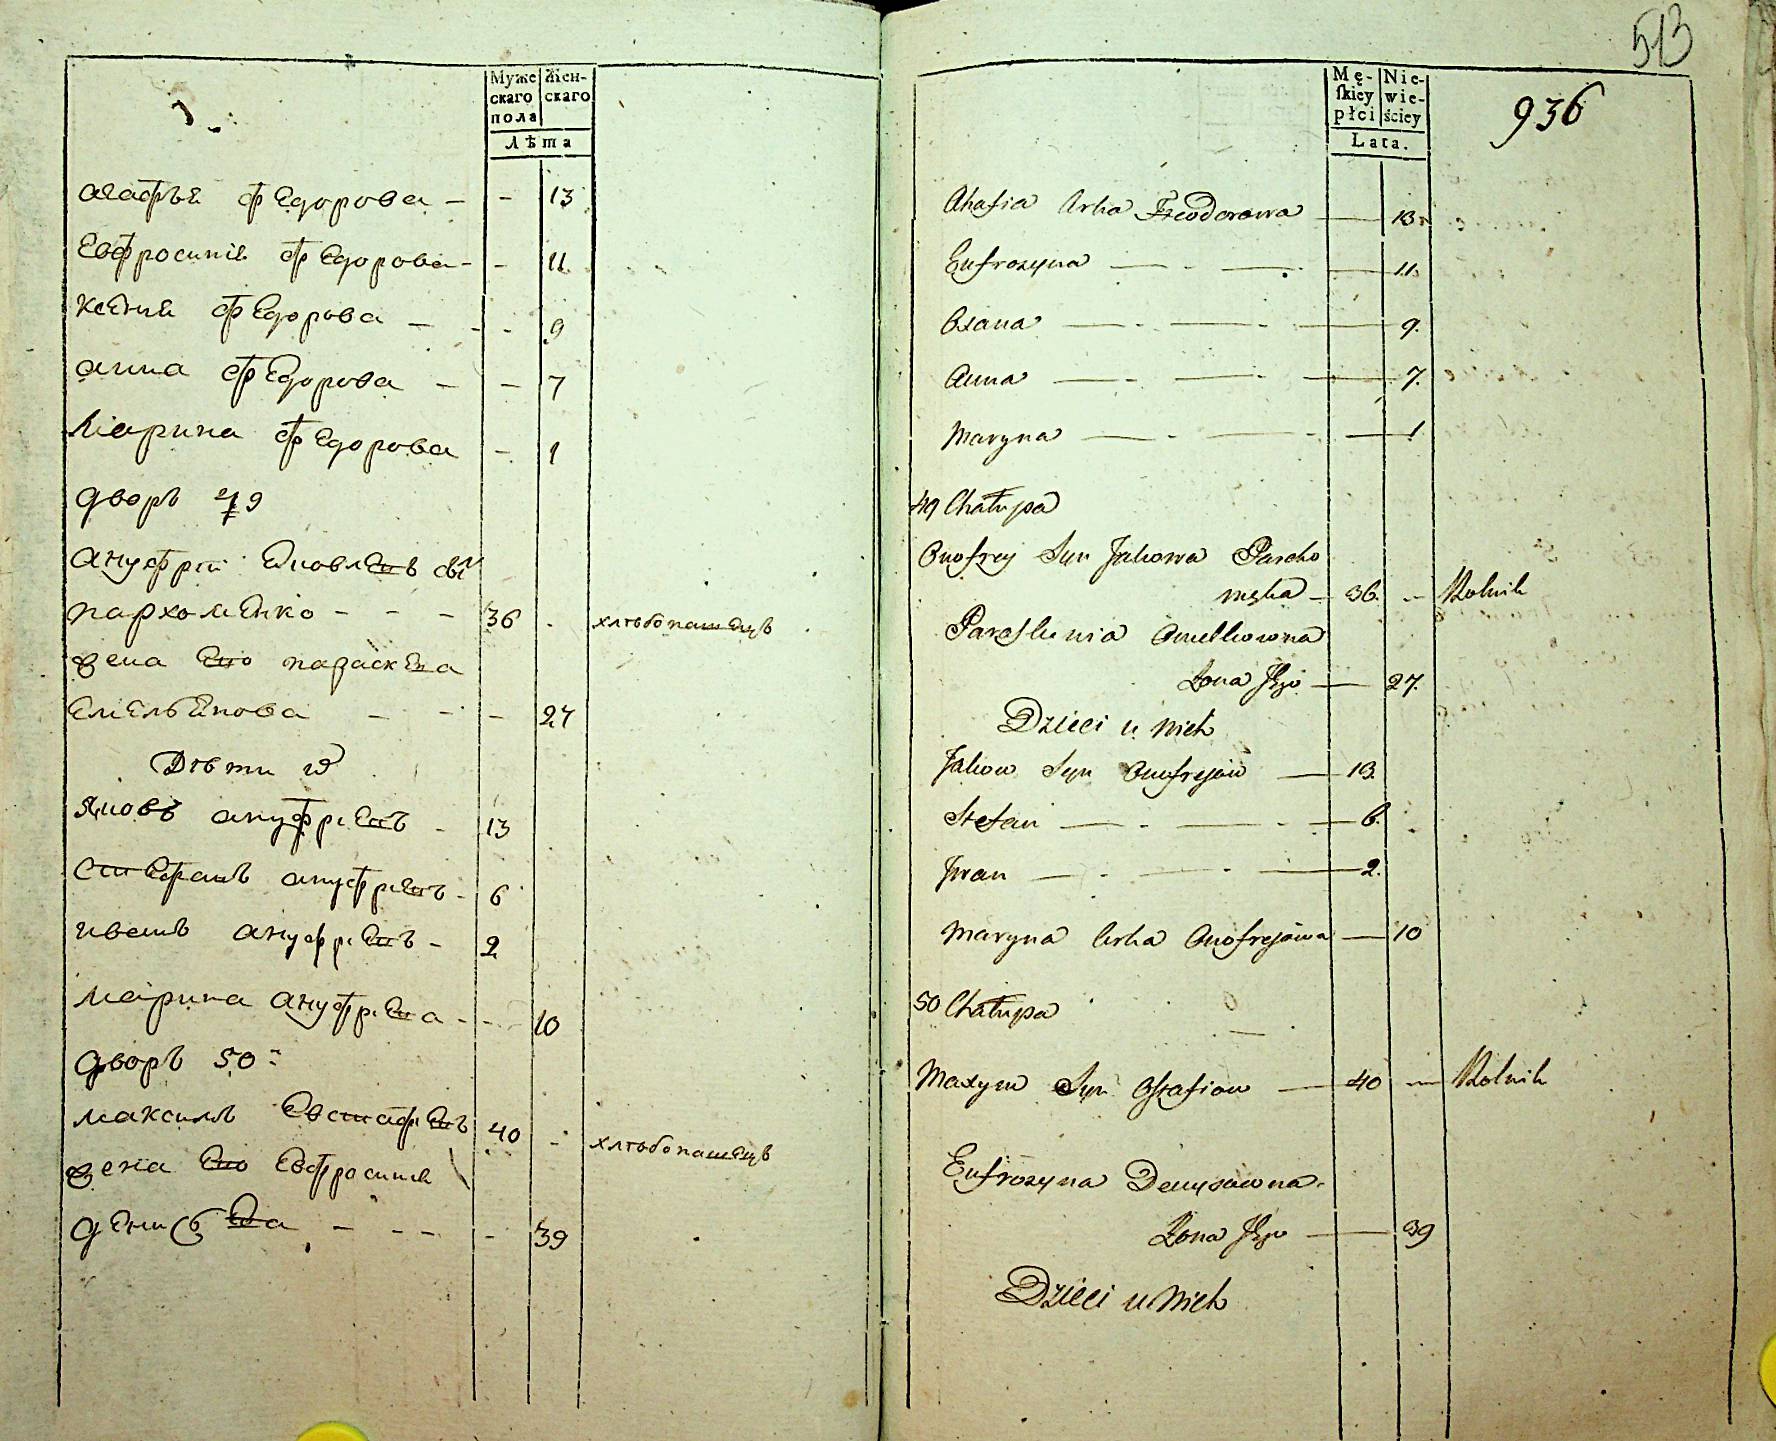 Муже
скаго
пола
Жен-
скаго
Лѣта
агафья федорова - - 13
Евфросинія федорова - - 11
Ксения федорова - - - 9
анна федорова - - 7
Марина федорова - 1
дворъ 49
ануфрий яковлевъ снъ
пархоменко - - - 36 - хлѣбопашецъ
жена ево параскева
емельянова - - - 27
Дѣти
яковъ ануфриевъ - 13
стефанъ ануфриевъ - 6
иванъ ануфриевъ - 2
Марина ануфриева - - 10
дворъ 50
максимъ Евстафиевъ 40 - хлѣбопашецъ
жена ево Евфросиния
денисова - - - - 39
513
Mę-
ſkiey
płci
Nie-
wie-
ściey
Lata.
936
Ahafia Crka Fteodorowa — 13
Eufrozyna — - — . — 11.
Oxana — - — - — 9.
Anna — - — - — 7.
Maryna — - — - — 1
49 Chałupa
Onofrey Syn Jakowa Parcho
menko - 36. - Rolnik
Paraskewia Omelkowna
Żona Jego — 27.
Dzieci u Nich
Jakow Syn Onofrejów — 13.
Stefan — - — - — 6.
Jwan — - — - — 2.
Maryna Crka Onofrejówa — 10
50 Chałupa
Maxym Syn Ostafiow — 40 — Rolnik
Eufrozyna Denysówna.
Żona Jego — 39
Dzieci u Nich